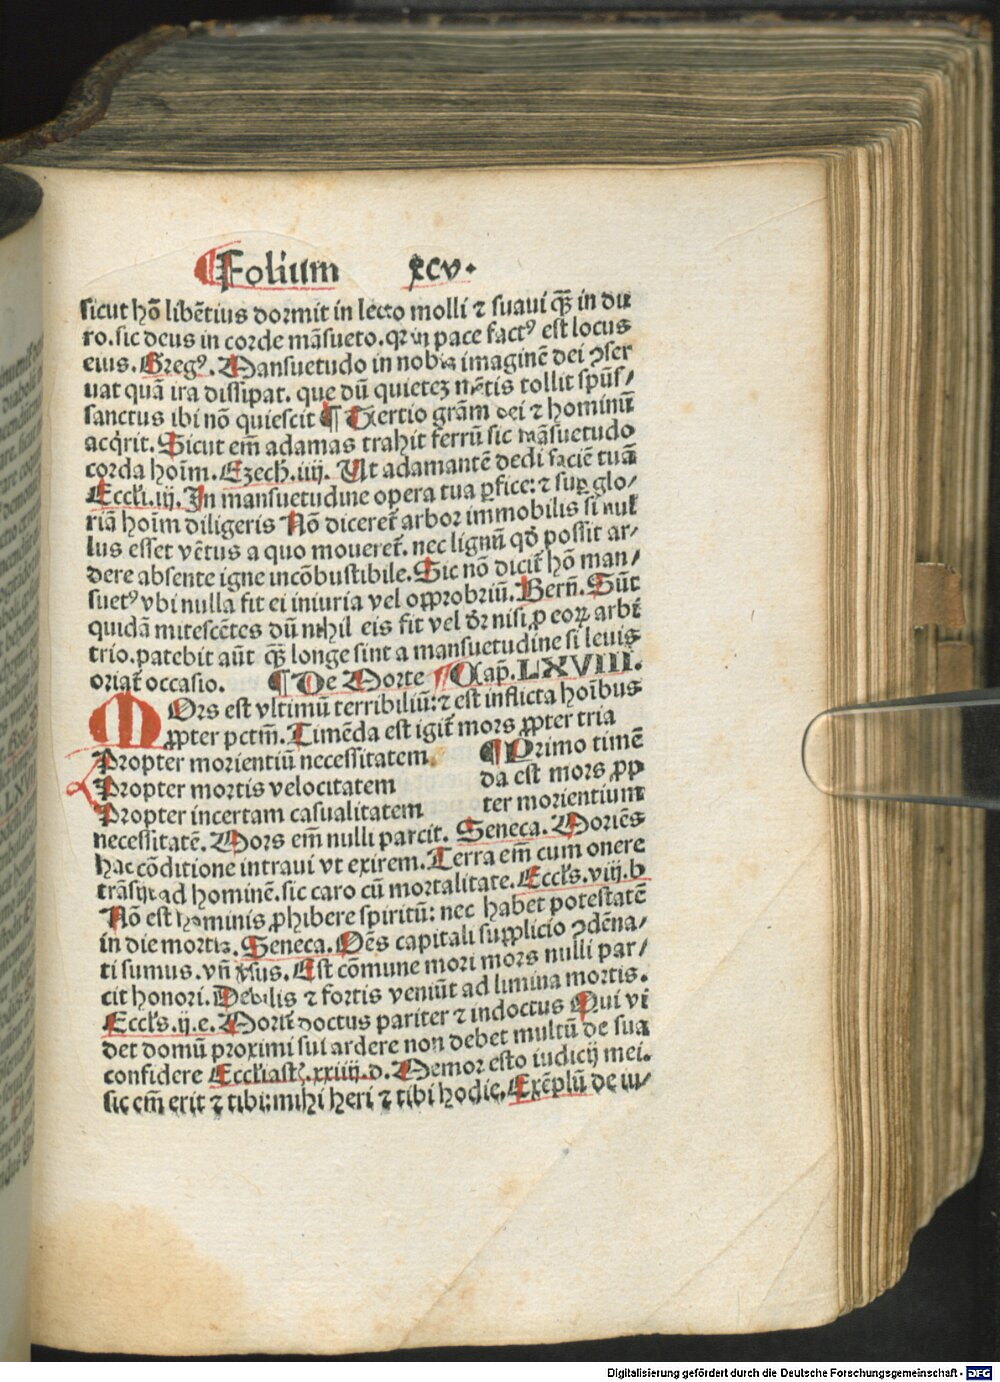 Folium xcv.
sicut hō libētius dormit in lecto molli ⁊ suaui qȝ in du
ro. sic deus in corde māsueto. qr in pace factꝰ est locus
eius. Gregꝰ. Mansuetudo in nobis imaginē dei ꝯser
uat quā ira dissipat. que dū quietez mētis tollit spūs/
sanctus ibi nō quiescit ¶ Tertio grām dei ⁊ hominū
acqrit. Sicut em̄ adamas trahit ferrū sic māsuetudo
corda hoīm. Ezech. iiij. Ut adamantē dedi faciē tuā
Eccli. iij. In mansuetudine opera tua ꝑfice: ⁊ suꝑ glo/
riā hoīm diligeris Nō diceret̄ arbor immobilis si nul
lus esset vētus a quo moueret̄. nec lignū qd̄ possit ar/
dere absente igne incōbustibile. Sic nō dicit̄ hō man/
suetꝰ vbi nulla fit ei iniuria vel opprobriū. Bern̄. Sūt
quidā mitescētes dū nihil eis fit vel dr̄ nisi ꝓ eoꝝ arbi
trio. patebit aūt qȝ longe sint a mansuetudine si leuis
oriat̄ occasio. ¶ De Morte ¶ Cap. LXVIII.
MOrs est vltimū terribiliū: ⁊ est inflicta hoībus
ꝓpter pctm̄. Timēda est igit̄ mors ꝓpter tria
Propter morientiū necessitatem. ¶ Primo timē
Propter mortis velocitatem da est mors ꝓp
Propter incertam casualitatem ter morientium
necessitatē. Mors em̄ nulli parcit. Seneca. Moriēs
hac cōditione intraui vt exirem. Terra em̄ cum onere
trāsijt ad hominē. sic caro cū mortalitate. Eccls. viij. b
Nō est hominis ꝓhibere spiritū: nec habet potestatē
in die mortis. Seneca. Oēs capitali supplicio ꝯdēna/
ti sumus. vn̄ ꝟsus. Est cōmune mori mors nulli par/
cit honori. Debilis ⁊ fortis veniūt ad limina mortis.
Eccls. ij. e. Morit̄ doctus pariter ⁊ indoctus Qui vi
det domū proximi sui ardere non debet multū de sua
confidere Ecclīast. xxiiij. d. Memor esto iudicij mei.
sic em̄ erit ⁊ tibi: mihi heri ⁊ tibi hodie. Exēplū de iu/
Digitalisierung gefördert durch die Deutsche Forschungsgemeinschaft - DFG